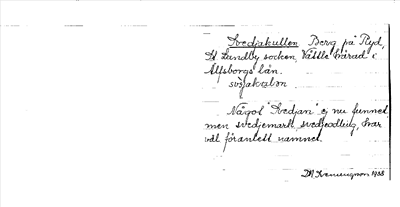 Svedjakullen Berg på Ryd,
St Lundby socken, Vättle härad i
Älfsborgs län.
Något "Svedjan" ej nu funnet
men svedjemark, svedjeodling, har
väl föranlett namnet.
1938